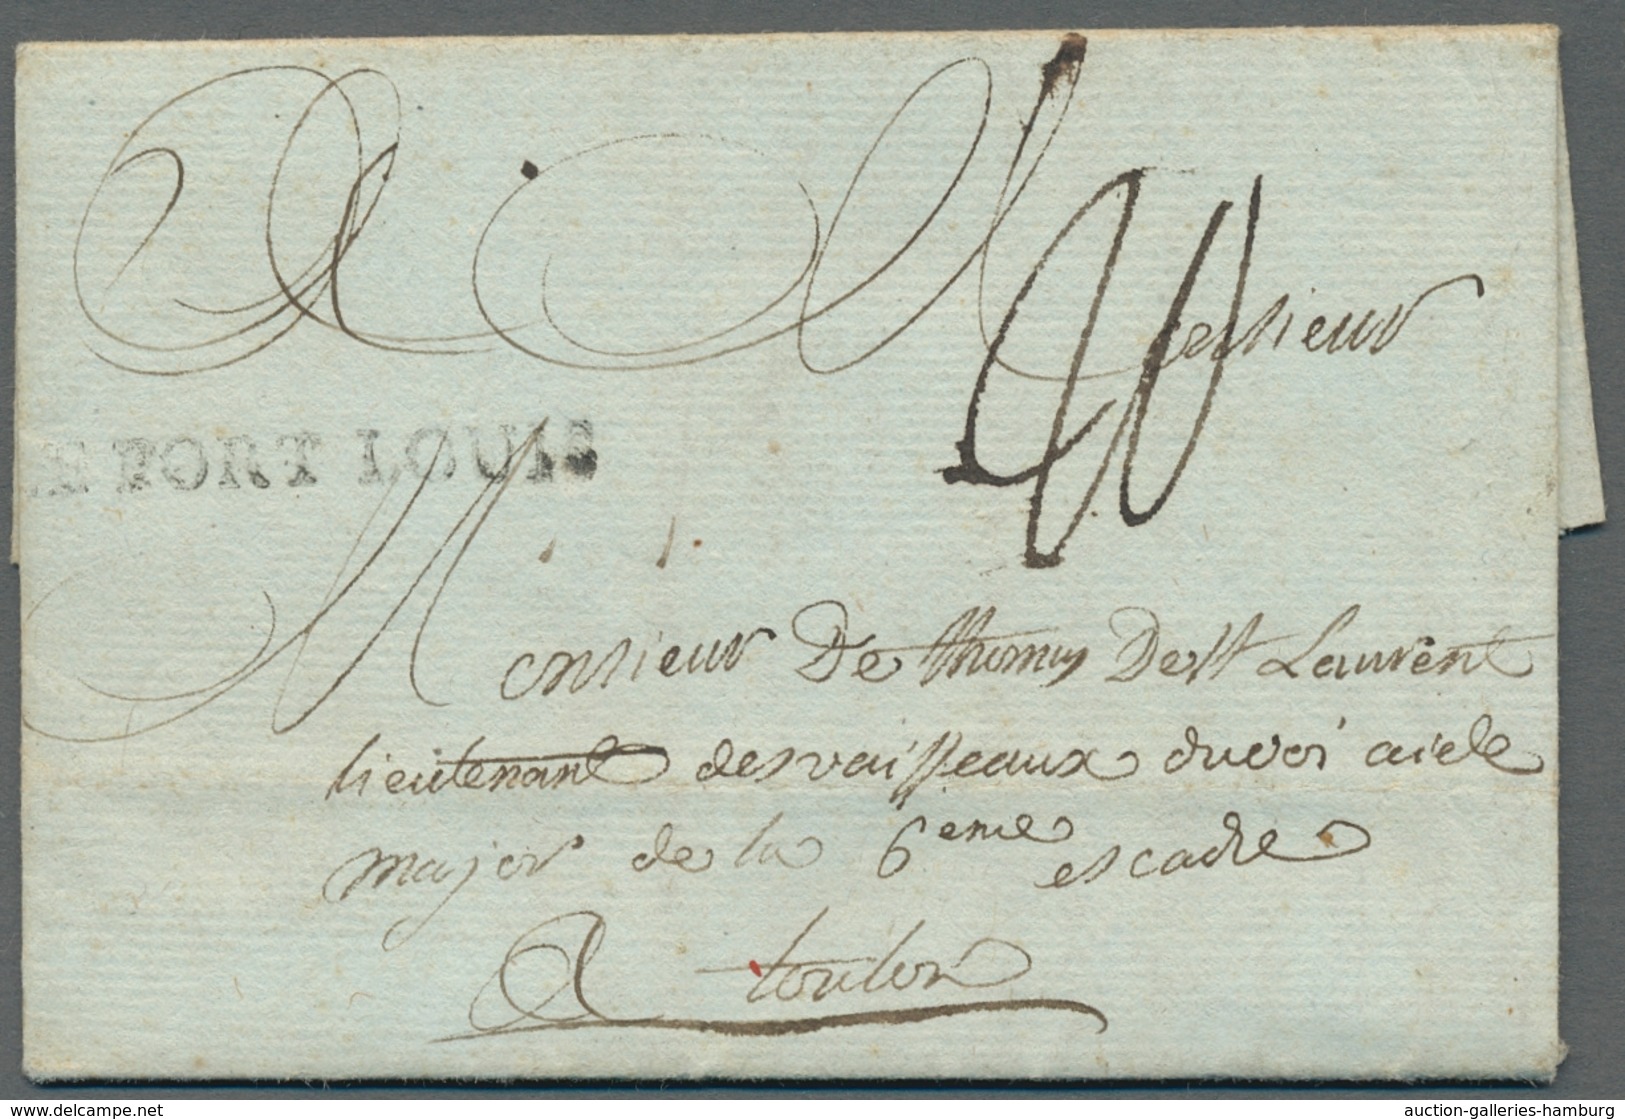 A Monsieur
40
LE PORT LOUIS
Monsieur De thomas De St Laurent
lieutenant des vaisseaux du roi aide
major de la 6eme escadre
A toulon
delcampe.net
auction-galleries-hamburg